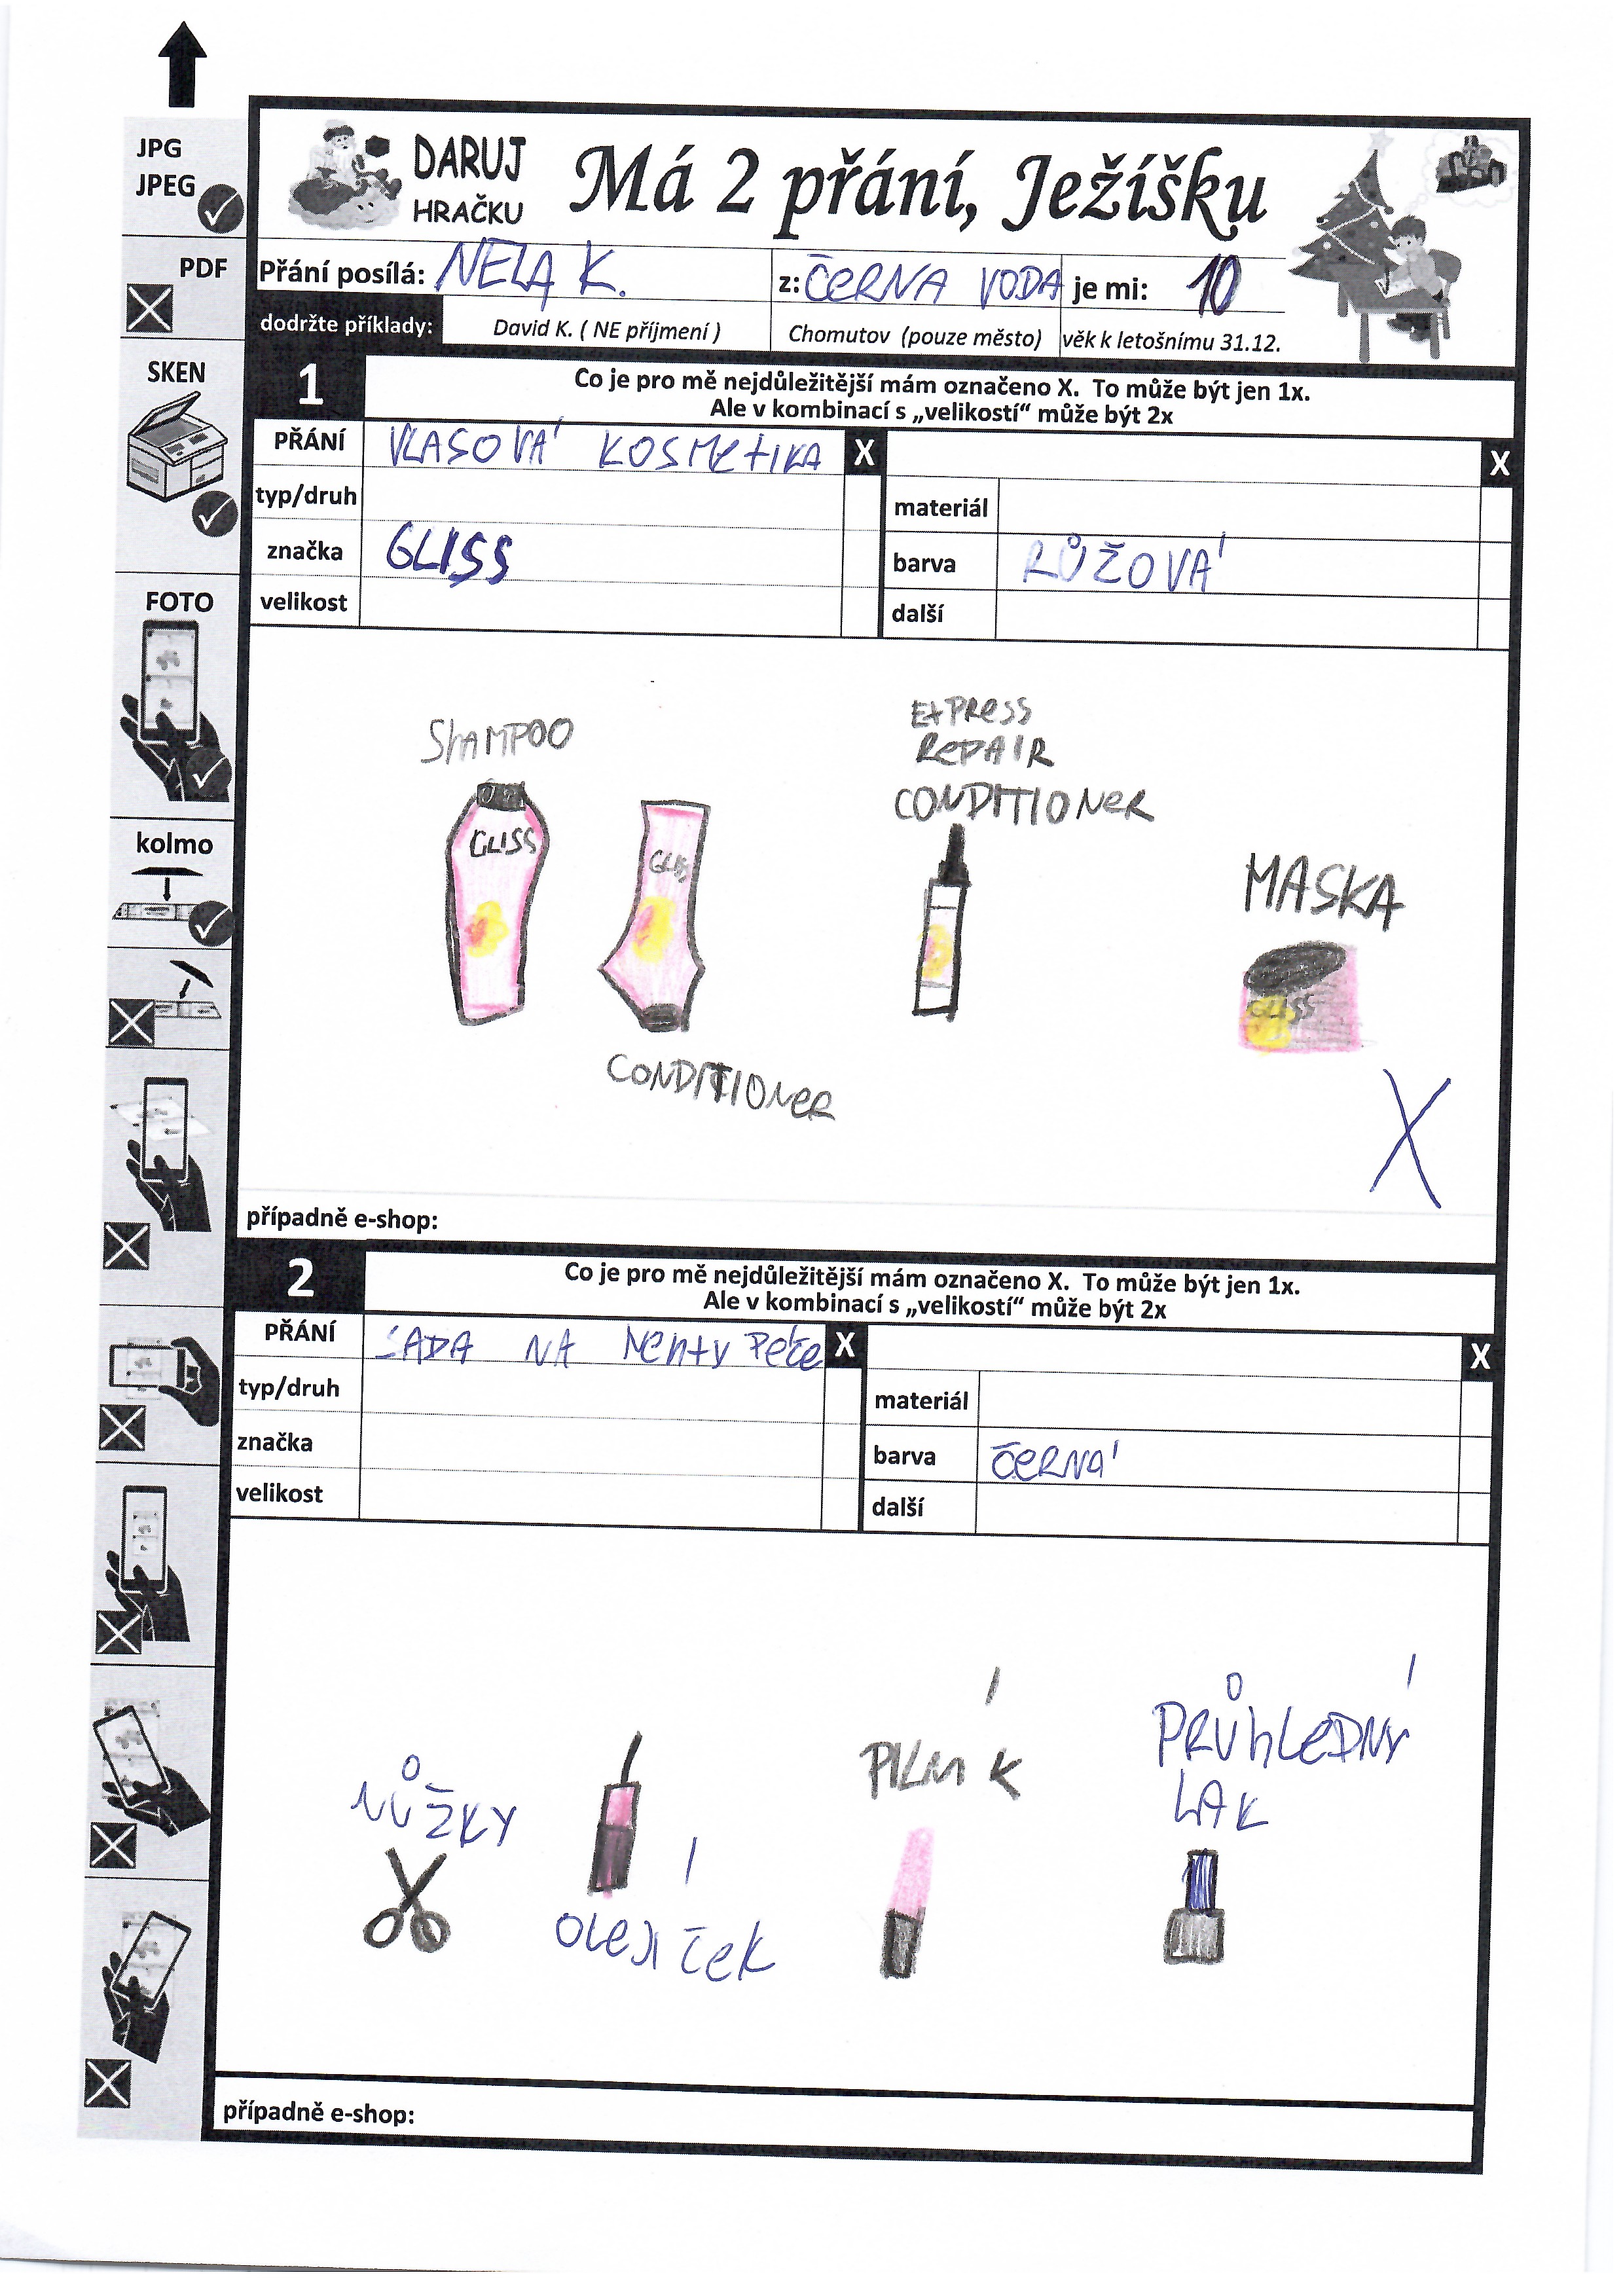 JPG
JPEG
PDF
SKEN
FOTO
kolmo
DARUJ
HRAČKU
Má 2 přání, Ježíšku
Přání posílá: NELA K. z: ČERNA VODA je mi: 10
dodržte příklady: David K. ( NE příjmení ) Chomutov (pouze město) věk k letošnímu 31.12.
1
Co je pro mě nejdůležitější mám označeno X. To může být jen 1x.
Ale v kombinací s „velikostí“ může být 2x
PŘÁNÍ VLASOVÁ KOSMETIKA X X
typ/druh materiál
značka GLISS barva RŮŽOVÁ
velikost další
ShAMPOO
EXPRESS
REPAIR
CONDITIONER
GLISS
GLISS
MASKA
GLISS
CONDITIONER
X
případně e-shop:
2
Co je pro mě nejdůležitější mám označeno X. To může být jen 1x.
Ale v kombinací s „velikostí“ může být 2x
PŘÁNÍ SADA NA NEHTY PÉČE X X
typ/druh materiál
značka barva ČERNÁ
velikost další
NŮŽKY
OLEJÍČEK
PILNÍK
PRŮHLEDNÝ
LAK
případně e-shop: